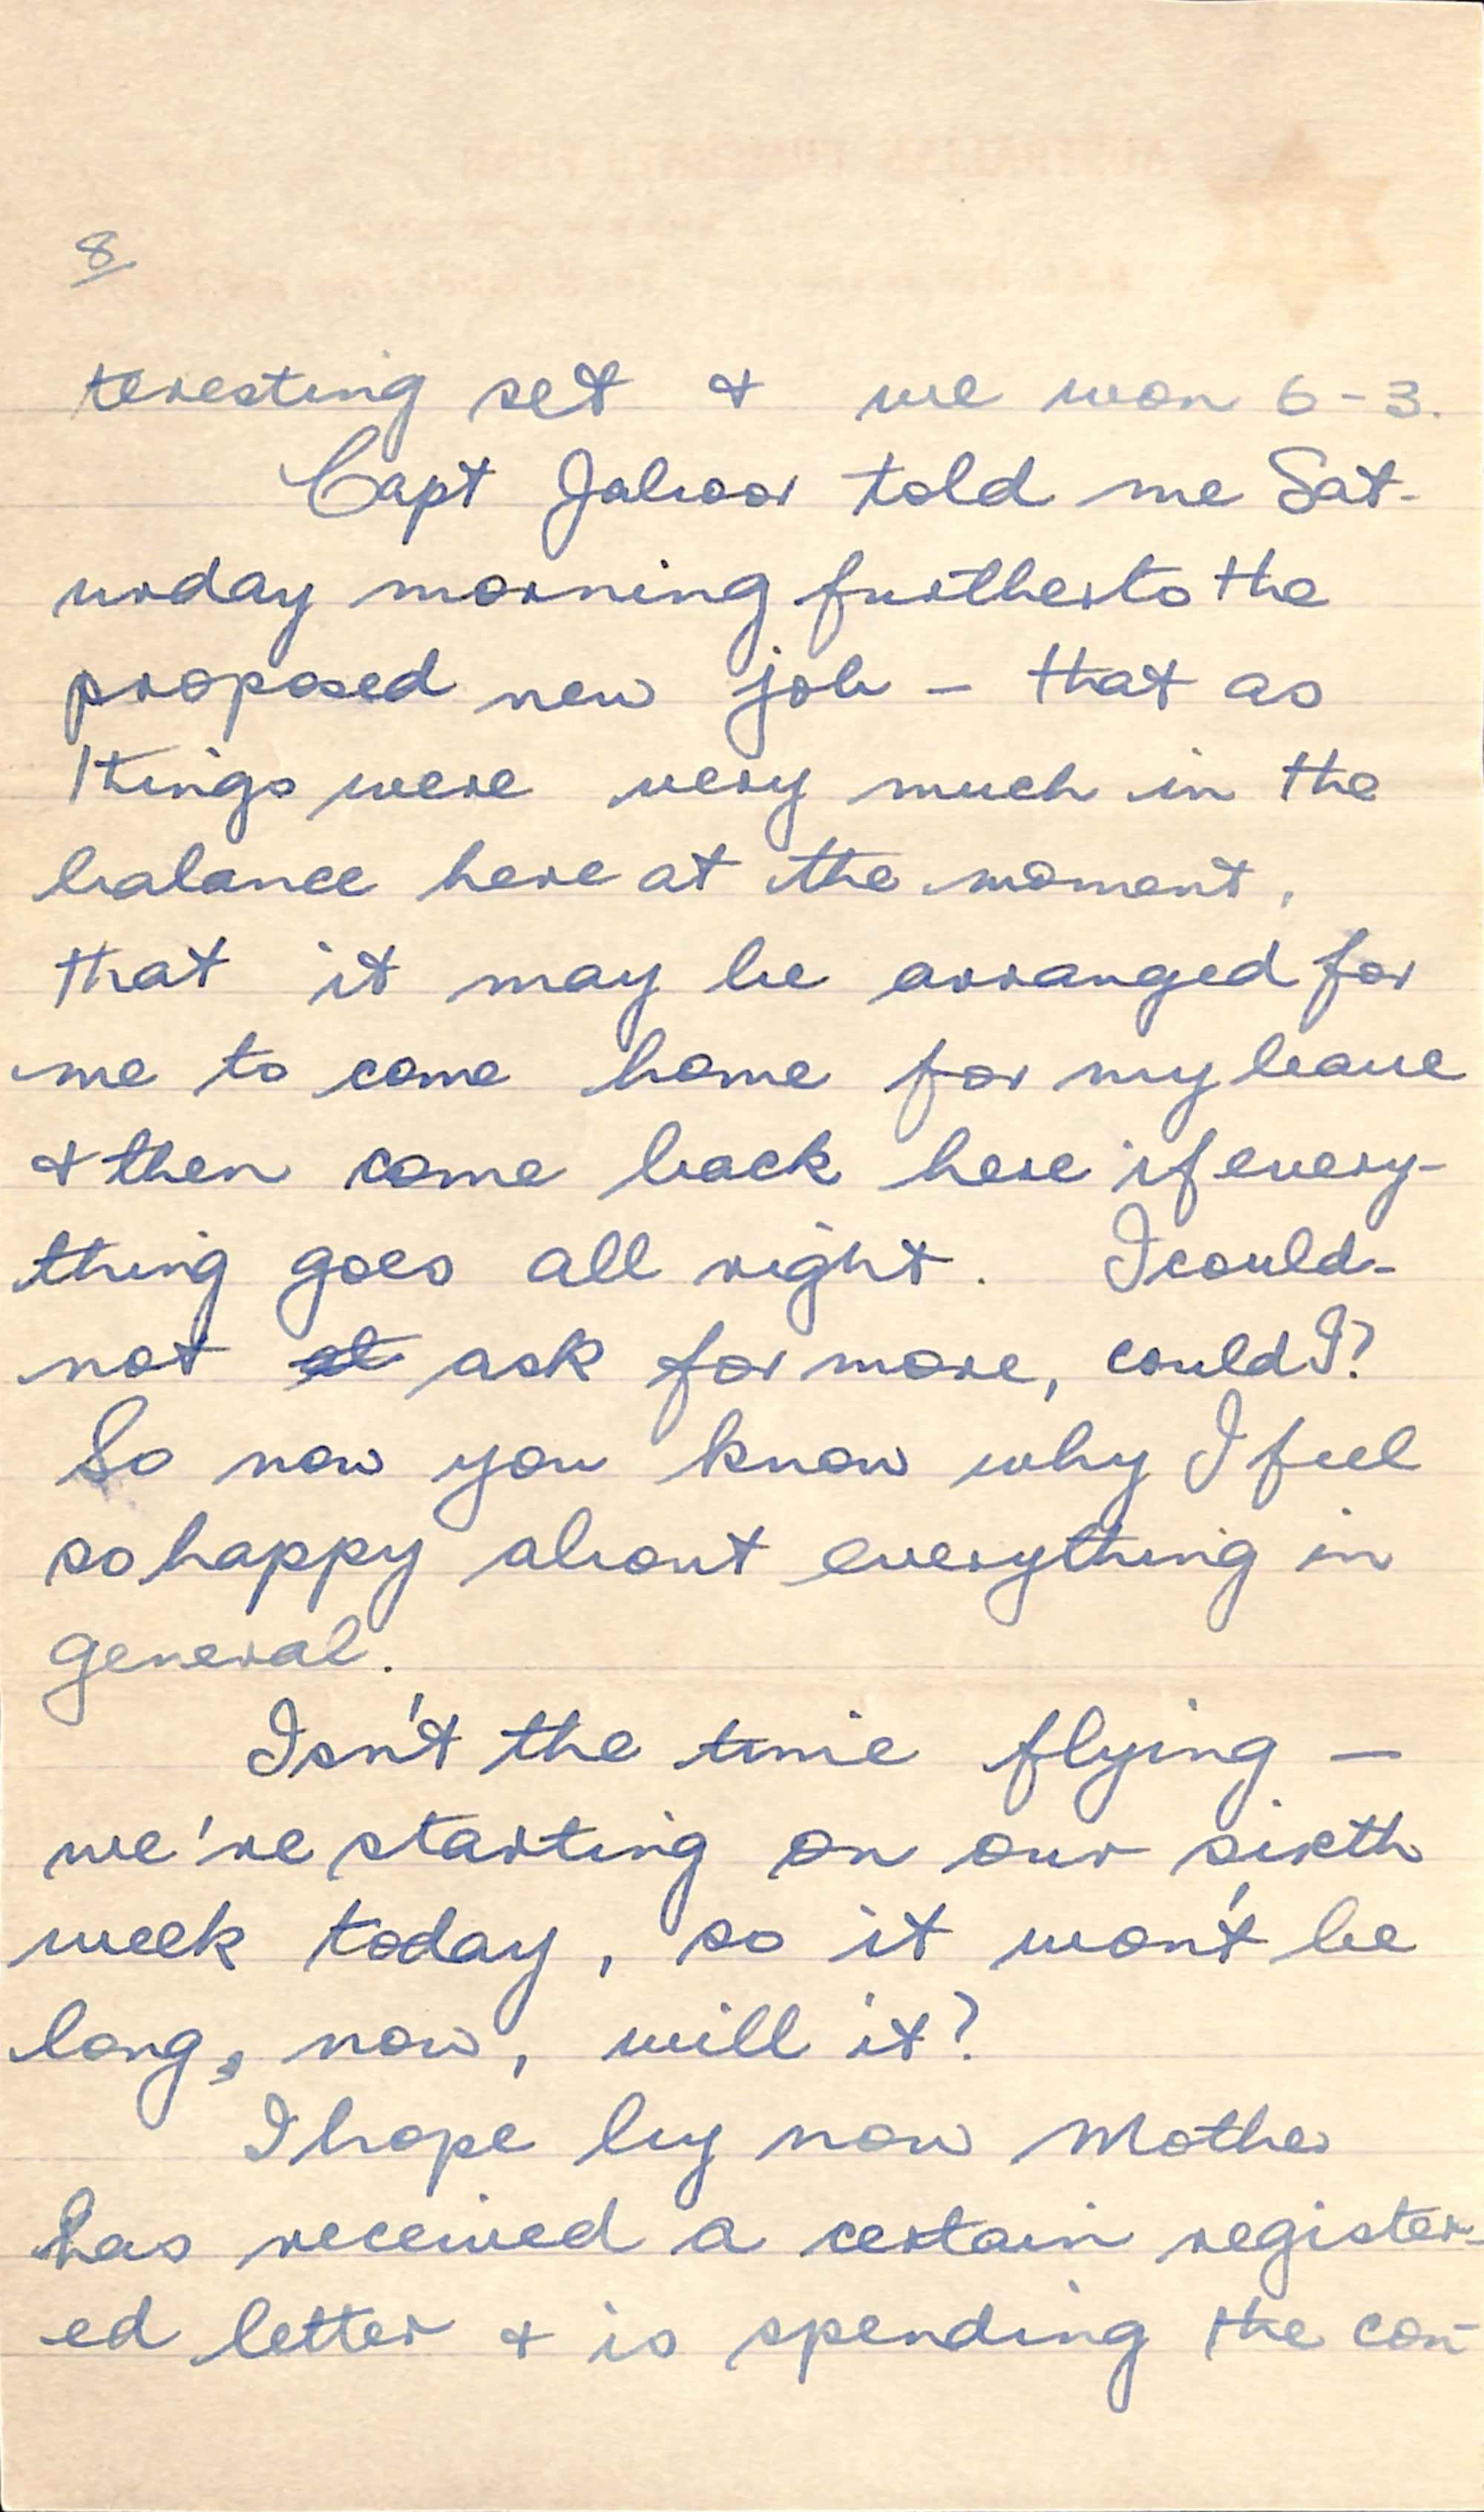 8
teresting set & we won 6-3.
Capt Jaboor told me Sat-
urday morning further to the
proposed new job - that as
things were very much in the
balance here at the moment,
that it may be arranged for
me to come home for my leave
& then come back here if every-
thing goes all right. I could-
not ask for more, could I?
So now you know why I feel
so happy about everything in
general.
Isn't the time flying -
we're starting on our sixth
week today, so it won't be
long, now, will it?
I hope by now Mother
has received a certain register-
ed letter & is spending the con-